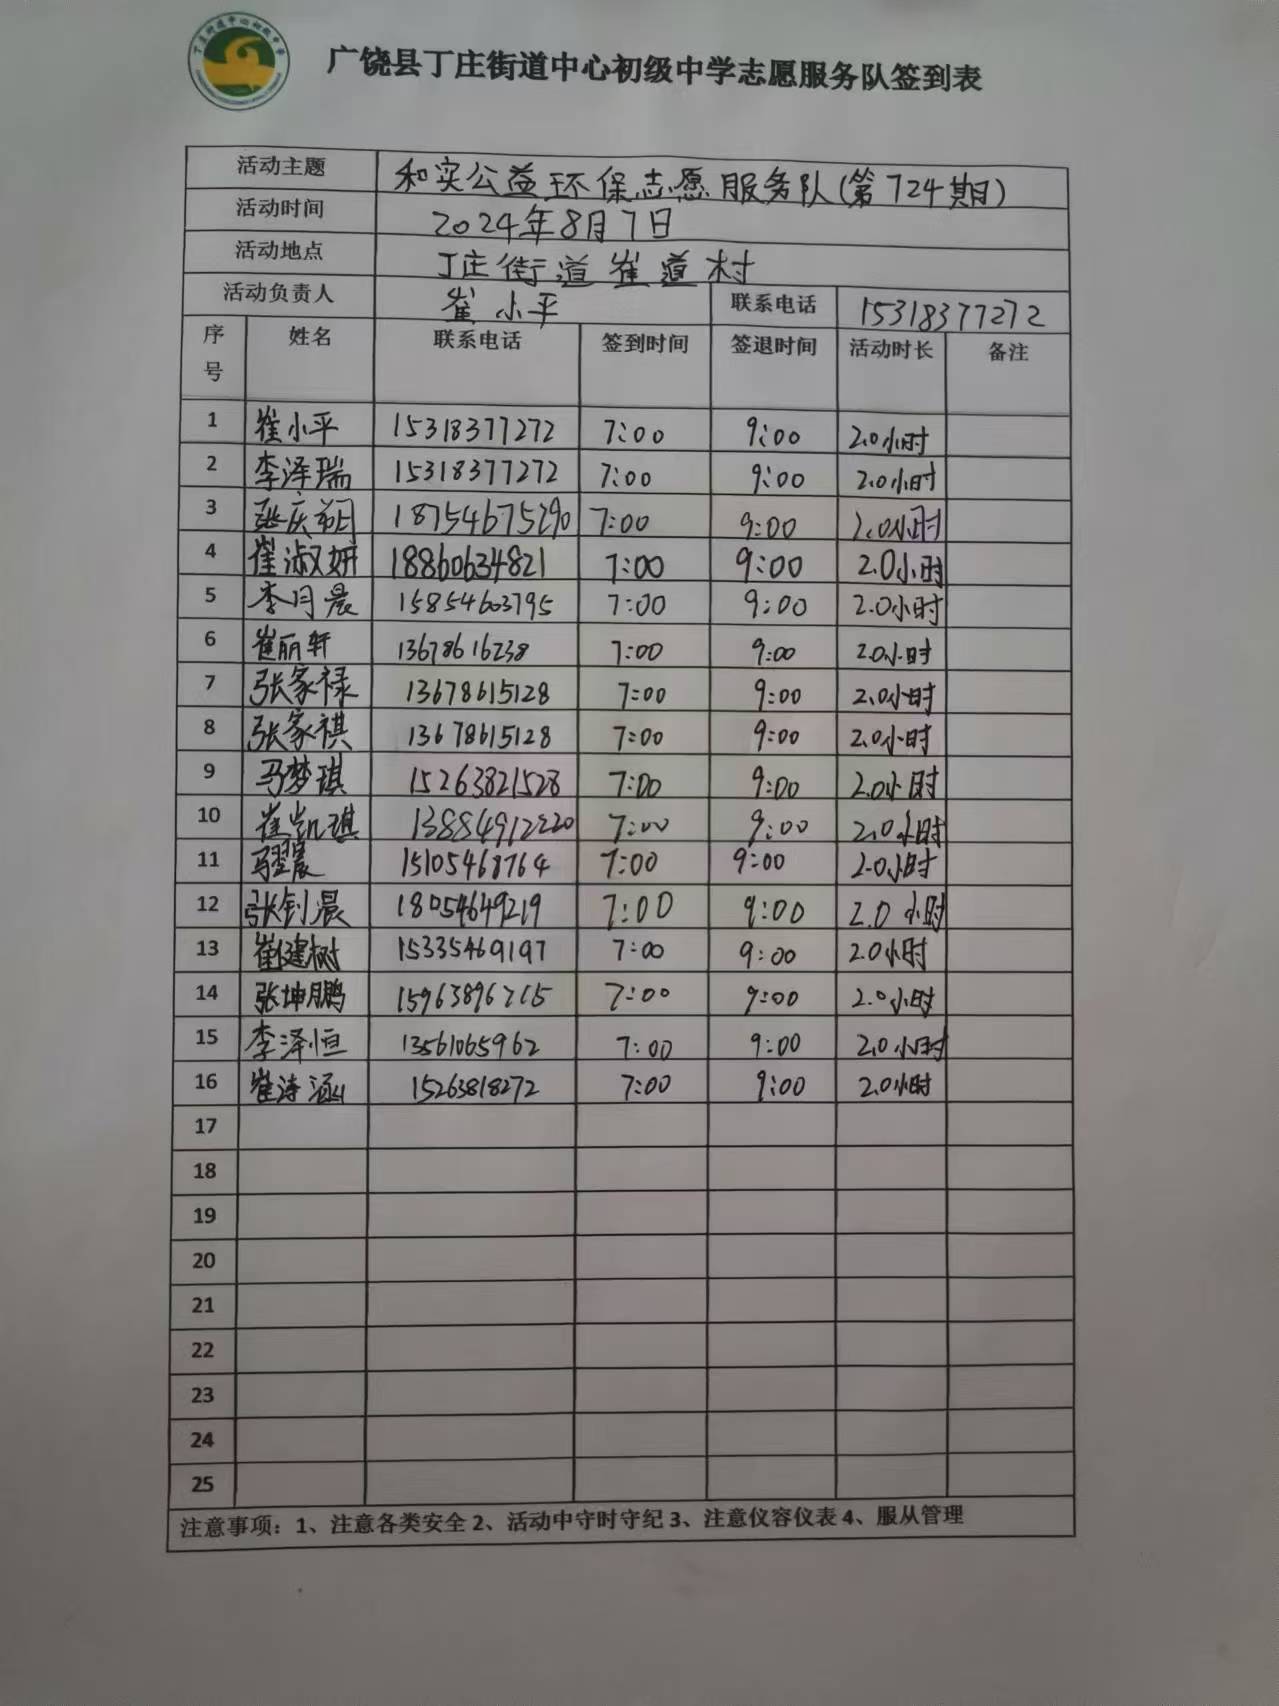 广饶县丁庄街道中心初级中学志愿服务队签到表
活动主题 和实公益环保志愿服务队(第724期)
活动时间 2024年8月7日
活动地点 丁庄街道崔道村
活动负责人 崔小平 联系电话 15318377272
序号 姓名 联系电话 签到时间 签退时间 活动时长 备注
1 崔小平 15318377272 7:00 9:00 2.0小时
2 李泽瑞 15318377272 7:00 9:00 2.0小时
3 张庆 18754675290 7:00 9:00 2.0小时
4 崔淑妍 18860634821 7:00 9:00 2.0小时
5 李月晨 15854603795 7:00 9:00 2.0小时
6 崔丽轩 13678616238 7:00 9:00 2.0小时
7 张家禄 13678615128 7:00 9:00 2.0小时
8 张家祺 13678615128 7:00 9:00 2.0小时
9 马梦琪 15263821528 7:00 9:00 2.0小时
10 崔凯琪 13884912220 7:00 9:00 2.0小时
11 15105468764 7:00 9:00 2.0小时
12 张钊晨 18054649219 7:00 9:00 2.0小时
13 崔建树 15335469197 7:00 9:00 2.0小时
14 张坤鹏 15963896215 7:00 9:00 2.0小时
15 李泽恒 13561065962 7:00 9:00 2.0小时
16 崔涛涵 15263818272 7:00 9:00 2.0小时
17
18
19
20
21
22
23
24
25
注意事项：1、注意各类安全 2、活动中守时守纪 3、注意仪容仪表 4、服从管理